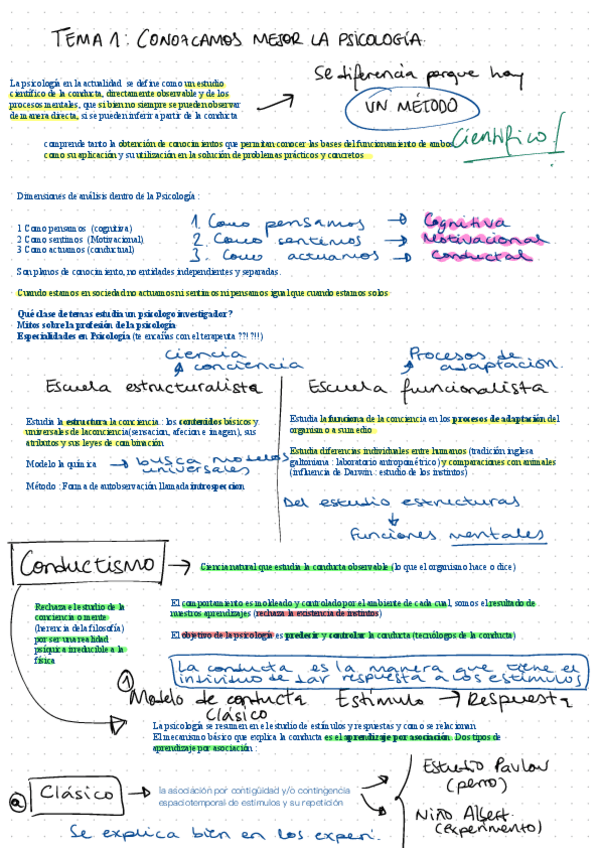 TEMA 1: CONOZCAMOS MEJOR LA PSICOLOGÍA.
La psicología en la actualidad se define como un estudio
científico de la conducta, directamente observable y de los
procesos mentales, que si bien no siempre se pueden observar
de manera directa, si se pueden inferir a partir de la conducta
Se diferencia porque hay
UN MÉTODO
Científico!
comprende tanto la obtención de conocimientos que permitan conocer las bases del funcionamiento de ambos
como su aplicación y su utilización en la solución de problemas prácticos y concretos
Dimensiones de análisis dentro de la Psicología :
1 Como pensamos (cognitiva)
2 Como sentimos (Motivacional)
3 Como actuamos (conductual)
1. Como pensamos → Cognitiva
2. Como sentimos → Motivacional
3. Como actuamos → Conductal
Son planos de conocimiento, no entidades independientes y separadas.
Cuando estamos en sociedad no actuamos ni sentimos ni pensamos igual que cuando estamos solos
Qué clase de temas estudia un psicologo investigador?
Mitos sobre la profesión de la psicología
Especialidades en Psicología (te encañas con el terapeuta ??!?!!)
Ciencia
conciencia
Escuela estructuralista
Estudia la estructura la conciencia : los contenidos básicos y
universales de la conciencia (sensacion, afecion e imagen), sus
atributos y sus leyes de combinación
Modelo la química → busca modelos
universales
Método : Forma de autobservación llamada introspeccion
Procesos de
adaptación.
Escuela funcionalista
Estudia la funciona de la conciencia en los procesos de adaptación del
organismo a su medio
Estudia diferencias individuales entre humanos (tradición inglesa
galtoniana : laboratorio antropométrico) y comparaciones con animales
(influencia de Darwin : estudio de los instintos)
Del estudio estructuras
↓
Funciones mentales
Conductismo → Ciencia natural que estudia la conducta observable (lo que el organismo hace o dice)
Rechaza ele studio de la
conciencia o mente
(herencia dela filosofía)
por ser una realidad
psíquica irreducible a la
física
El comportamiento es moldeado y controlado por el ambiente de cada cual, somos el resultado de
nuestros aprendizajes (rechaza la existencia de instintos)
El objetivo de la psicología es predecir y controlar la conducta (tecnólogos de la conducta)
La conducta es la manera que tiene el
individuo de dar respuesta a los estímulos
① Modelo de conducta Estímulo → Respuesta
Clásico
La psicología se resumen en el estudio de estímulos y respuestas y como se relacionan
El mecanismo básico que explica la conducta es el aprendizaje por asociación. Dos tipos de
aprendizaje por asociación :
a Clásico → la asociación por contigüidad y/o contingencia
espaciotemporal de estímulos y su repetición
Estudio Pavlov
(perro)
Niño Albert
(experimento)
Se explica bien en los experi.